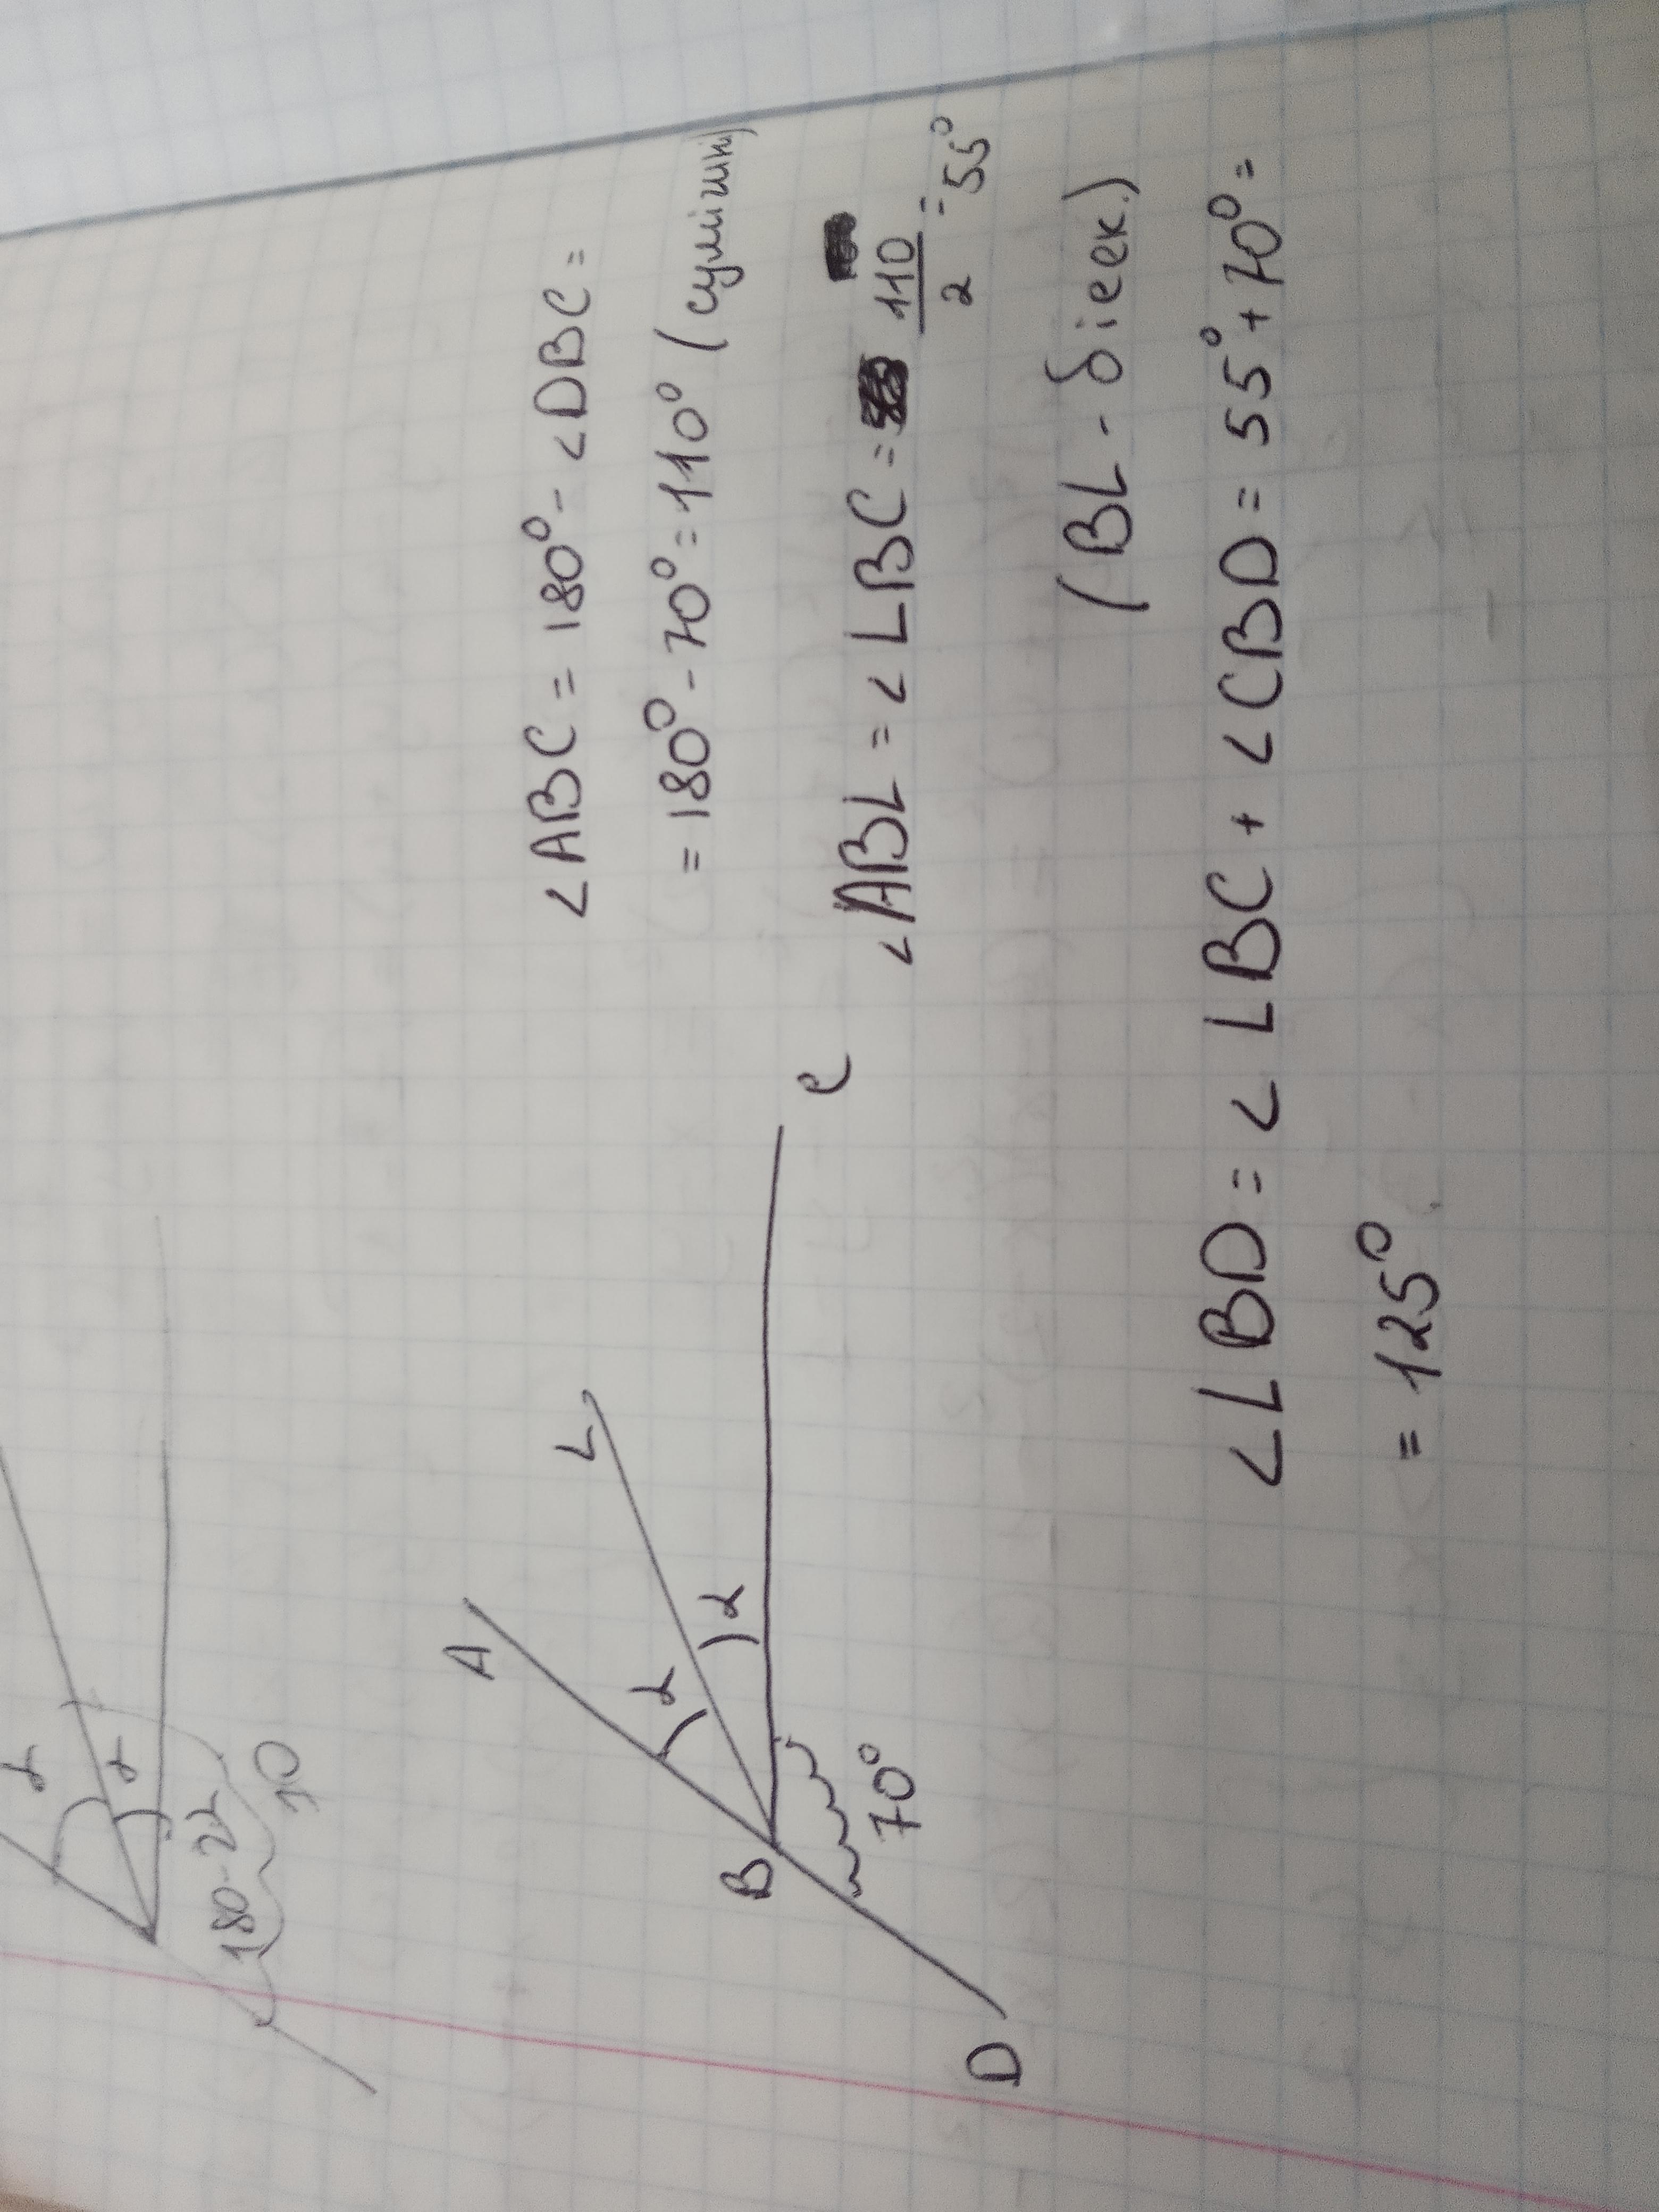 α
α
180-2α
70
A
L
α
α
B
C
70°
D
∠ABC = 180° - ∠DBC =
= 180° - 70° = 110° (суміжні)
∠ABL = ∠LBC = 110/2 = 55°
(BL - бісек.)
∠LBD = ∠LBC + ∠CBD = 55° + 70° =
= 125°.